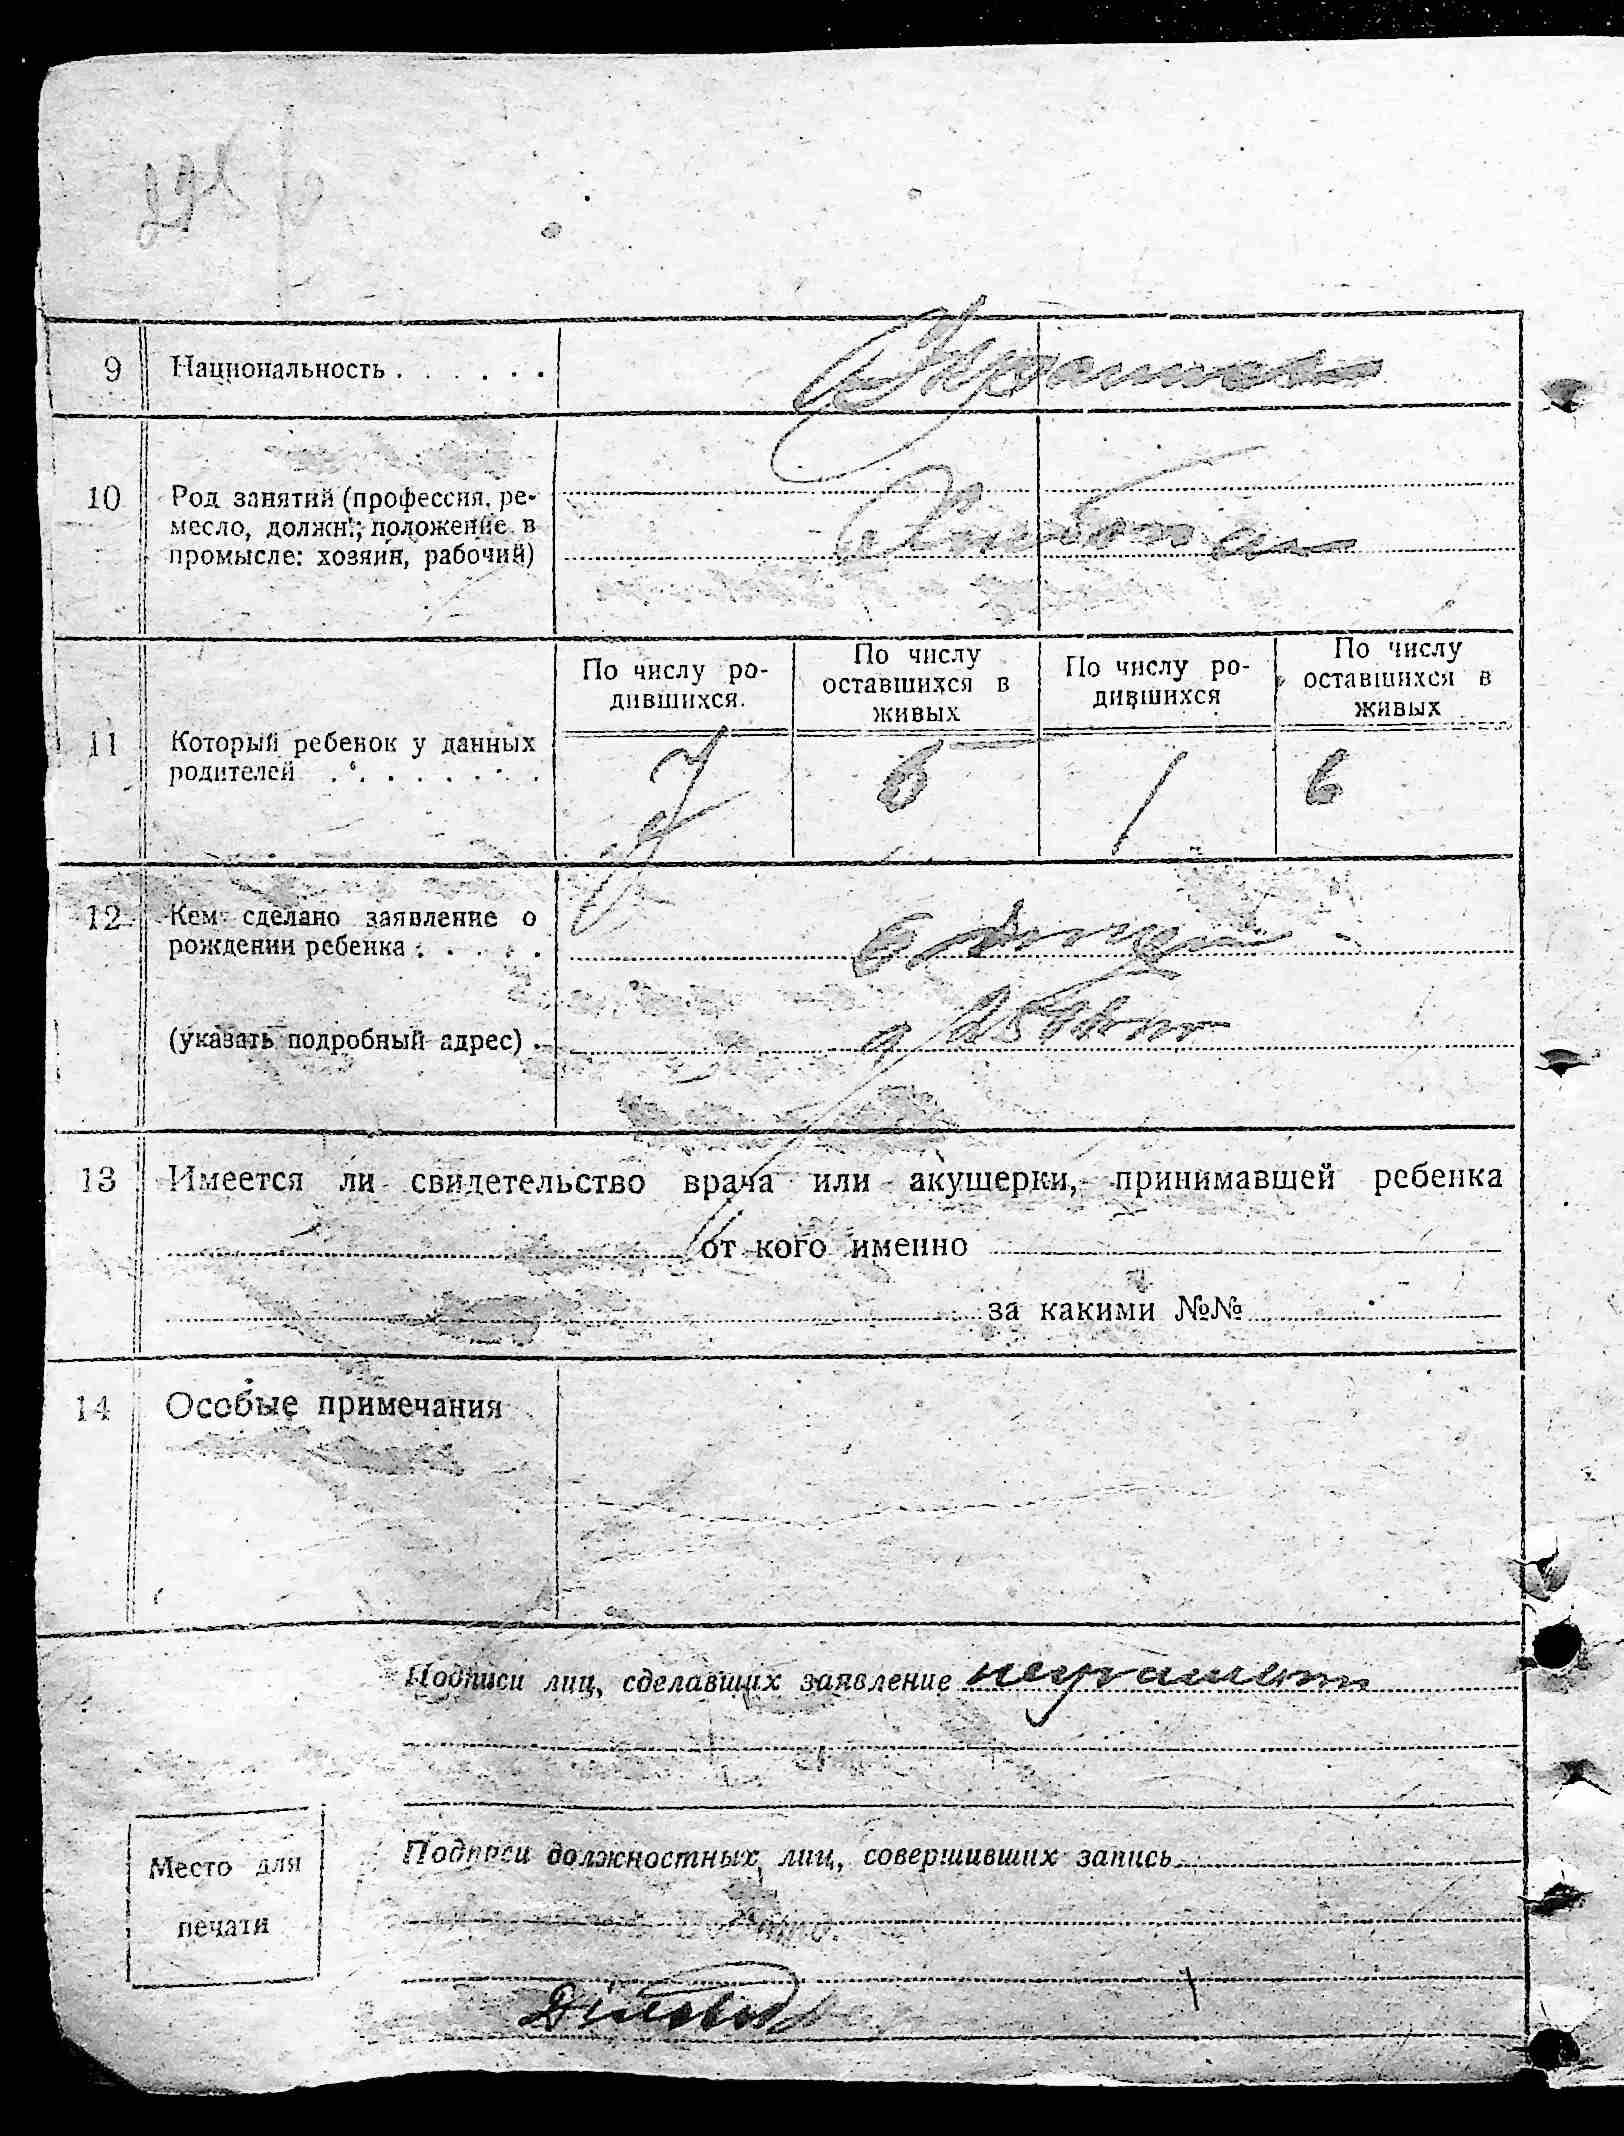 9 Национальность . . . . . . Украинцы
10 Род занятий (профессия, ре-
месло, должн.; положение в
промысле: хозяин, рабочий)
По числу ро-
дившихся.
По числу
оставшихся в
живых
По числу ро-
дившихся
По числу
оставшихся в
живых
11 Который ребенок у данных
родителей . . . . . . . .
7 6 1 6
12 Кем сделано заявление о
рождении ребенка . . . . .
(указать подробный адрес) .
13 Имеется ли свидетельство врача или акушерки, принимавшей ребенка
от кого именно
за какими №№
14 Особые примечания
Подписи лиц, сделавших заявление неграмотн
Подписи должностных лиц, совершивших запись
Место для
печати